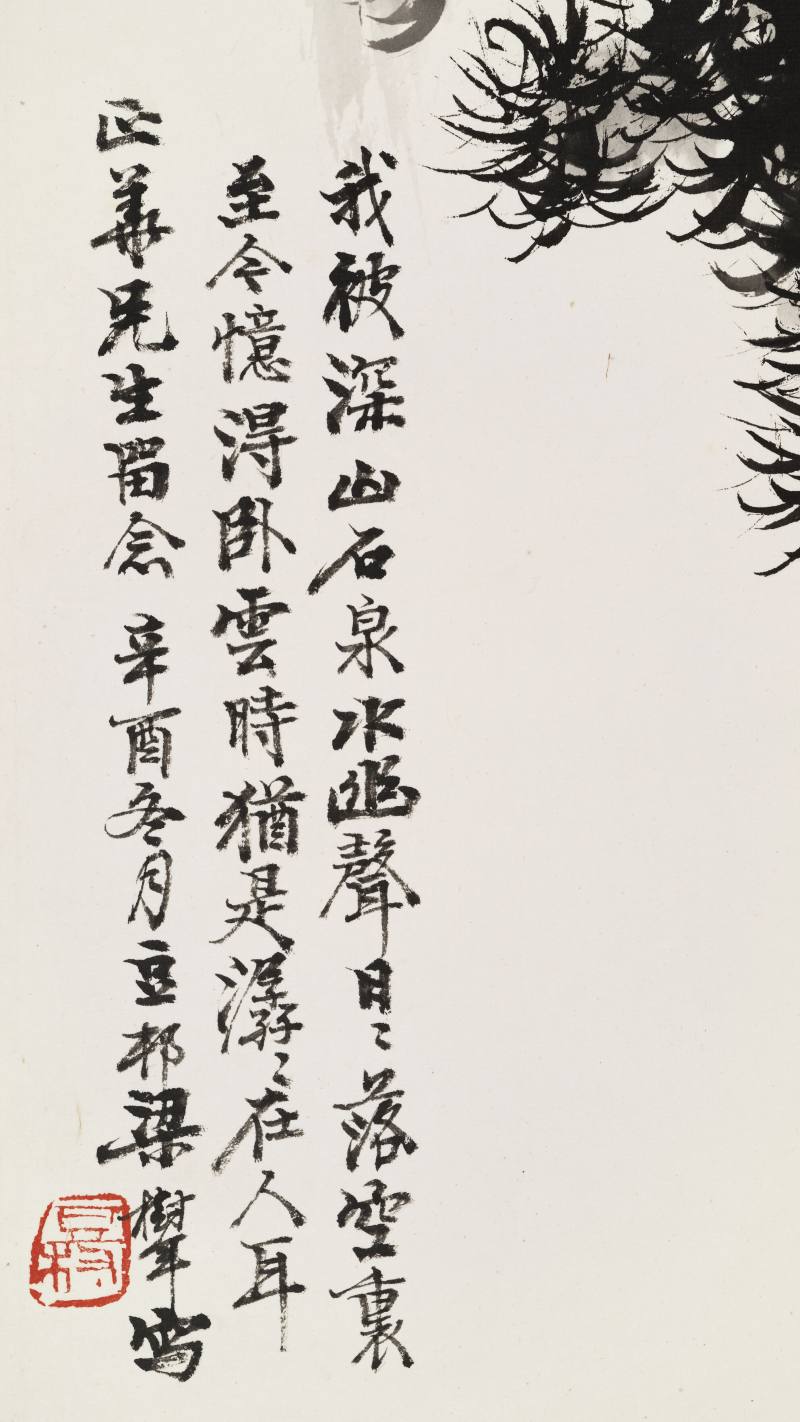 我被深山石泉水幽聲日〻落空裏
至今憶得卧雲時猶是潺〻在人耳
正華先生留念 辛酉冬月豆邨梁樹年寫
豆村